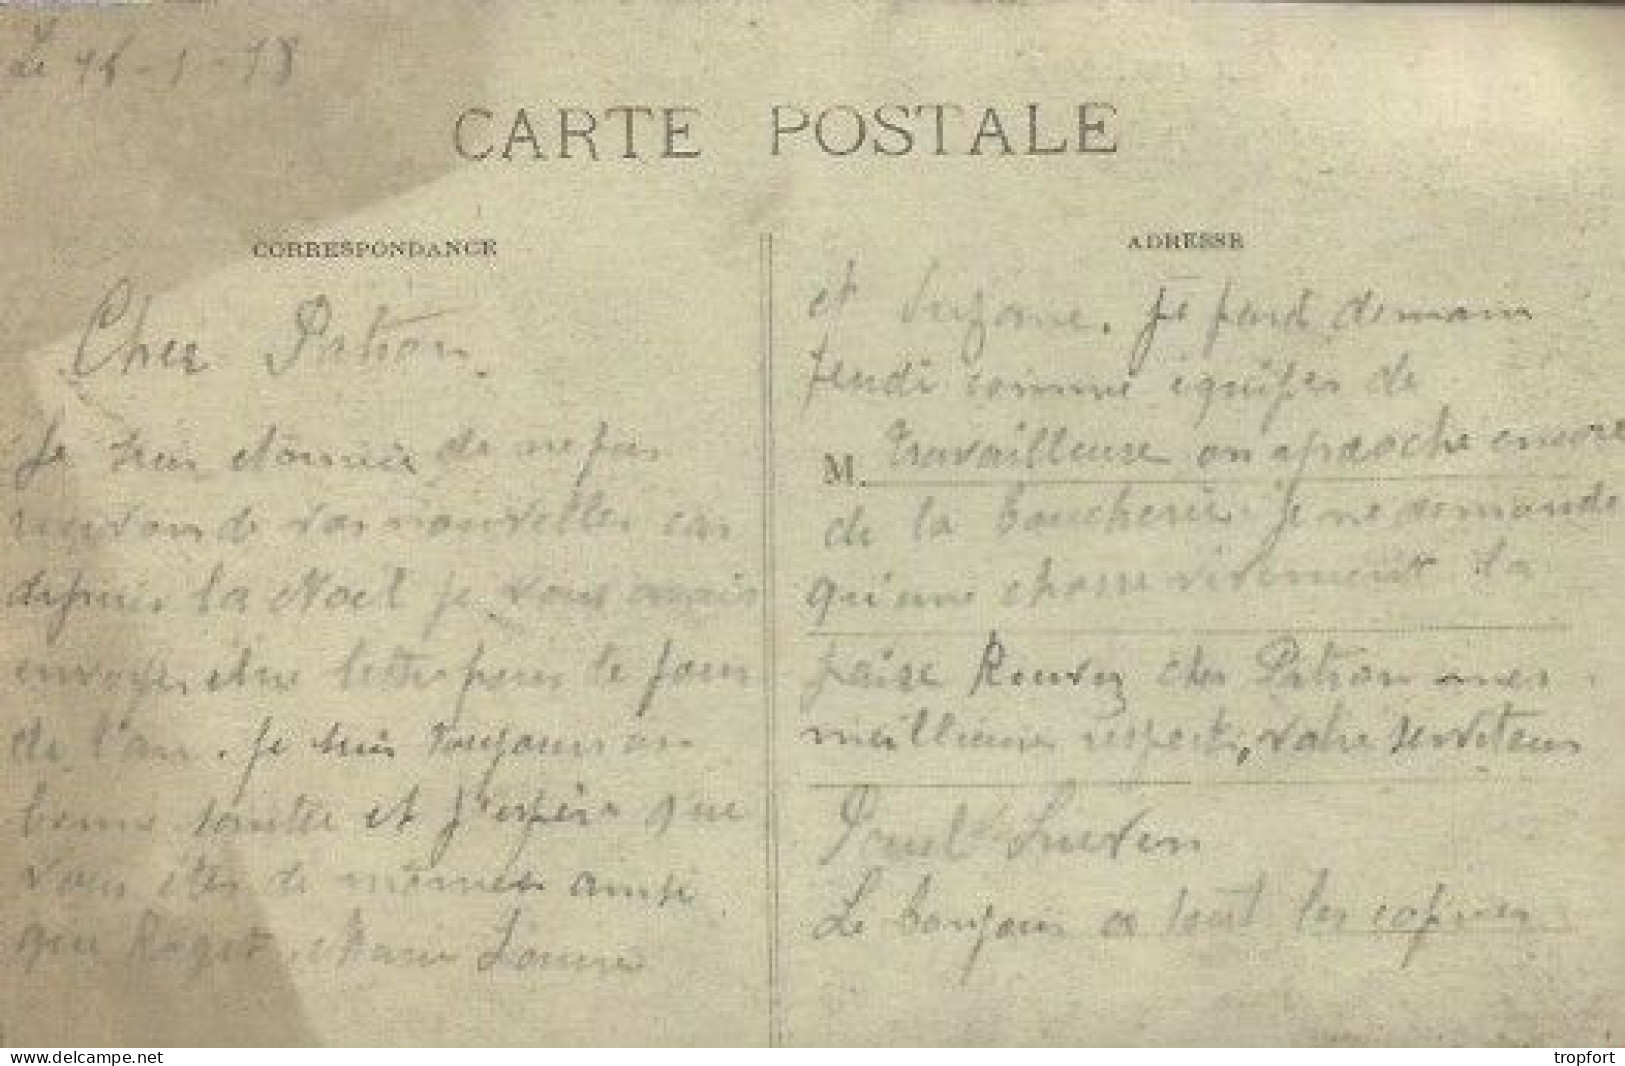 Le 16-1-18
CARTE POSTALE
CORRESPONDANCE
Cher Patron.
Je suis etonnée de ne pas
de vos nouvelles car
depuis la Noel je vous avais
envoyer une lettre pour le jour
de l'an. Je suis toujours en
bonne santée et j'espère que
vous êtes de mêmes ainsi
que Roger, Marie Louise
ADRESSE
et Suzanne. Je part demain
Jeudi comme équipes de
M. travailleuse on aproche encore
de la boucherie. Je ne demande
qu'une chosse vivement la
paise Recevez cher Patron mes
meilleures respects, votre serviteur
Paul
Le bonjour a tout les copines
www.delcampe.net
tropfort